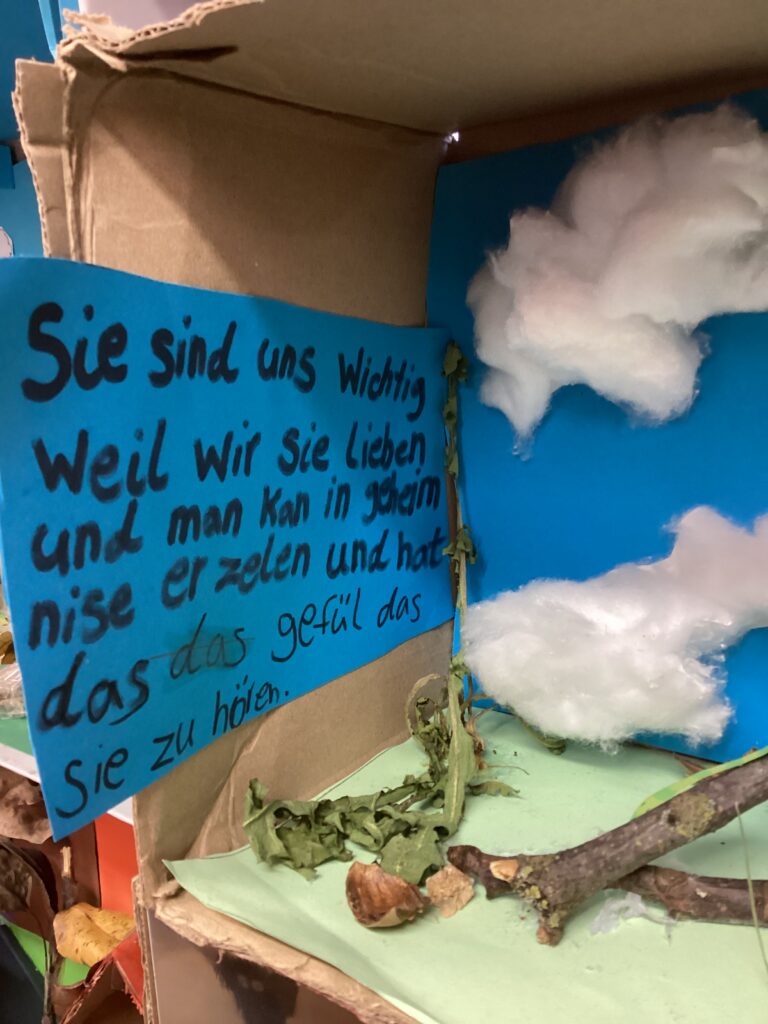 Sie sind uns Wichtig
Weil wir sie lieben
und man kan in geheim
nise erzelen und hat
das das gefül das
Sie zu hören.